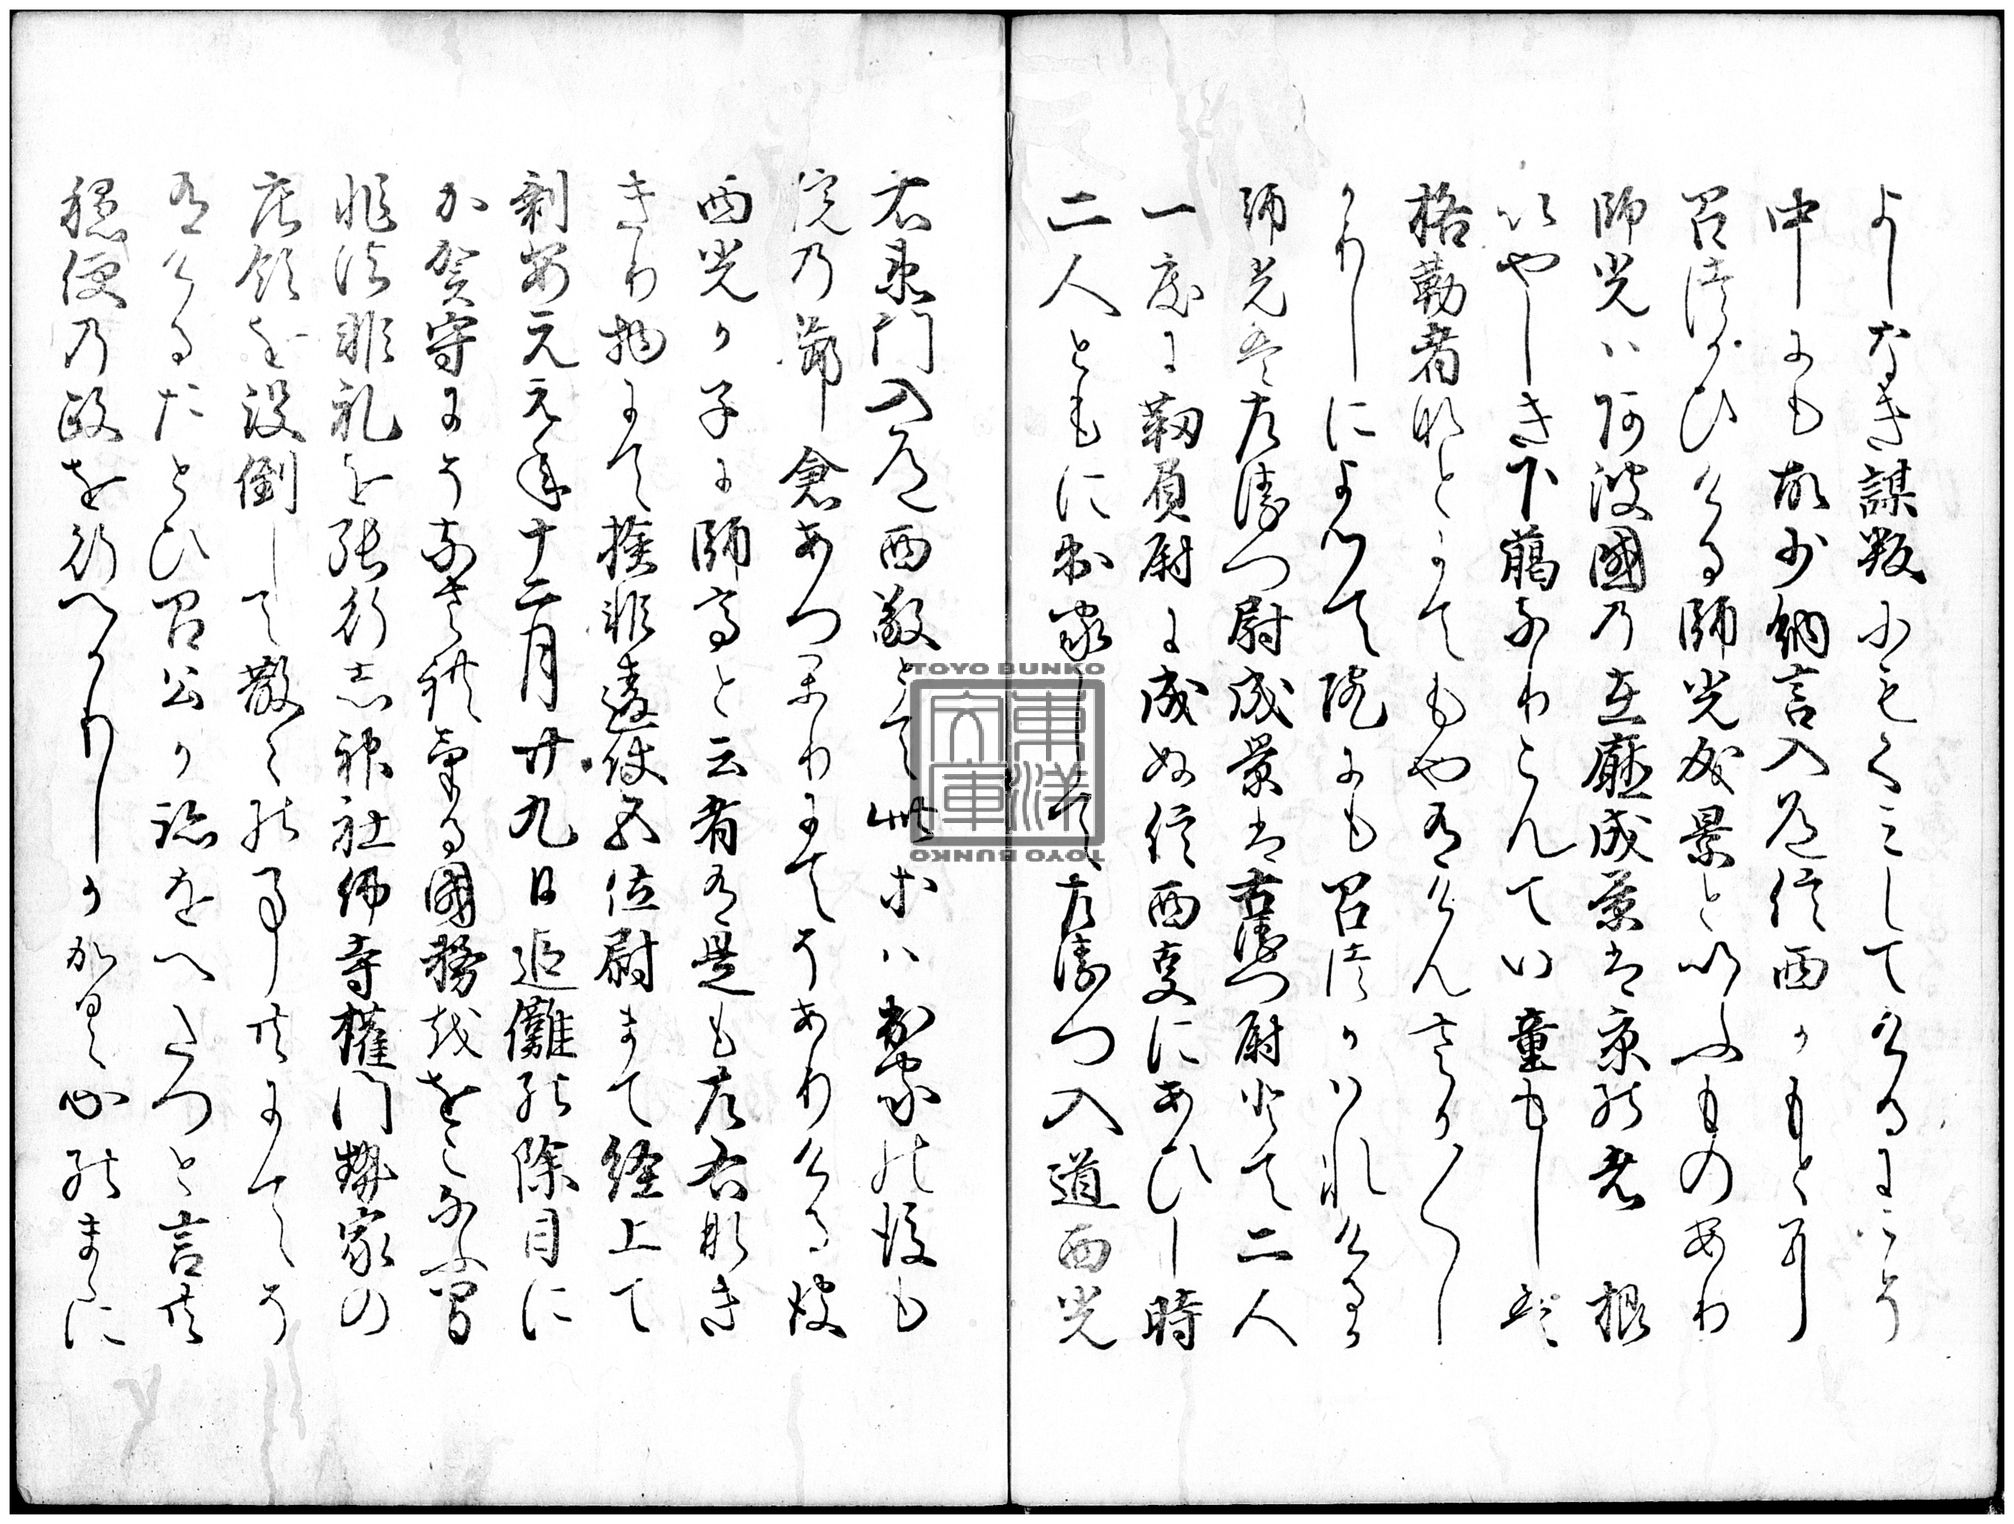 よしなき謀叛にもくみしてけるにこそ
中にも故少納言入道信西かもとに
召つかひける師光成景といふものあり
師光は阿波國の在廳成景は京の者根
いやしき下﨟なりこんてい童もしは
格勤者なとにてもや有けんさか〳〵し
かりしによつて院にも召つかはれけるか
師光は左衛門尉成景は右衛門尉とて二人
一度に靱負尉に成ぬ信西事にあひし時
二人ともに出家して左衛門入道西光
右衛門入道西敬とて此等は出家の後も
院の御倉あつかりにてそありける彼
西光か子に師高と云者有是も左右なき
きり物にて検非違使五位尉まて経上て
剰安元元年十二月廿九日追儺の除目に
か賀守にそなされける國務をおこなふ間
非法非礼を張行し神社仏寺権門勢家の
庄領を没倒して散々の事共にてそ
有けるたとひ召公か跡をへたつと言共
穏便の政を行へかりしか如是心のまゝに
TOYO BUNKO
東洋文庫
TOYO BUNKO